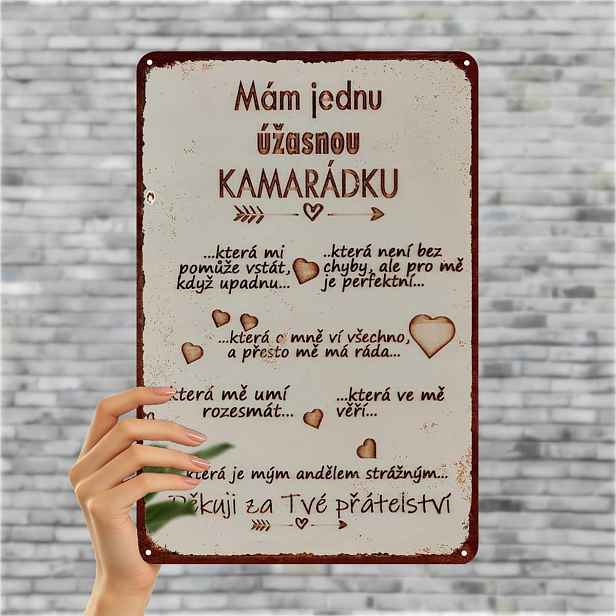 Mám jednu
úžasnou
KAMARÁDKU
...která mi
pomůže vstát,
když upadnu...
..která není bez
chyby, ale pro mě
je perfektní...
...která o mně ví všechno,
a přesto mě má ráda...
která mě umí
rozesmát...
...která ve mě
věří...
která je mým andělem strážným...
Děkuji za Tvé přátelství